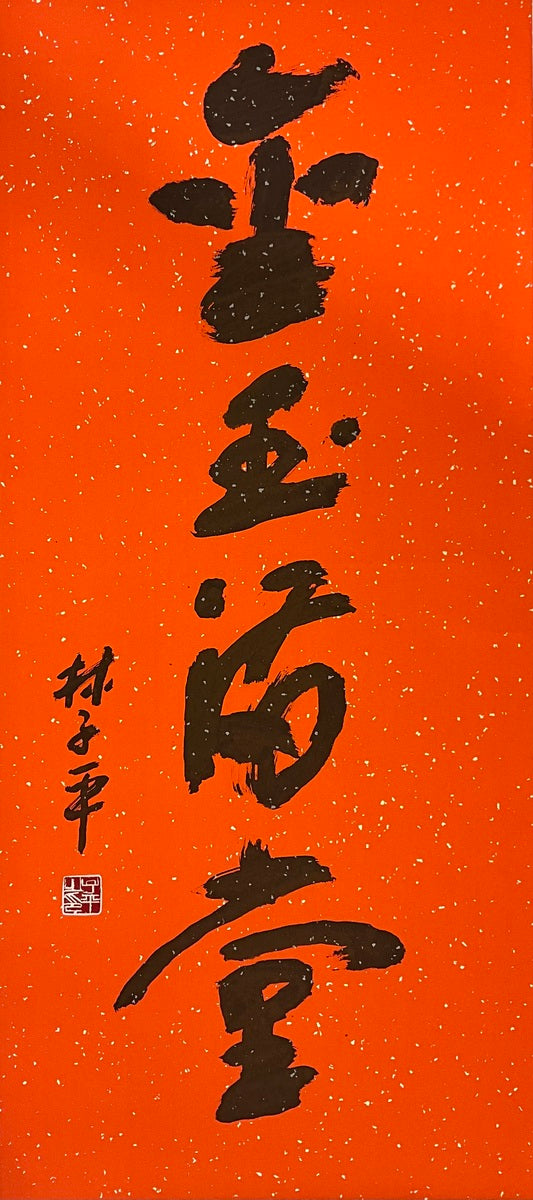 金玉满堂
林子平